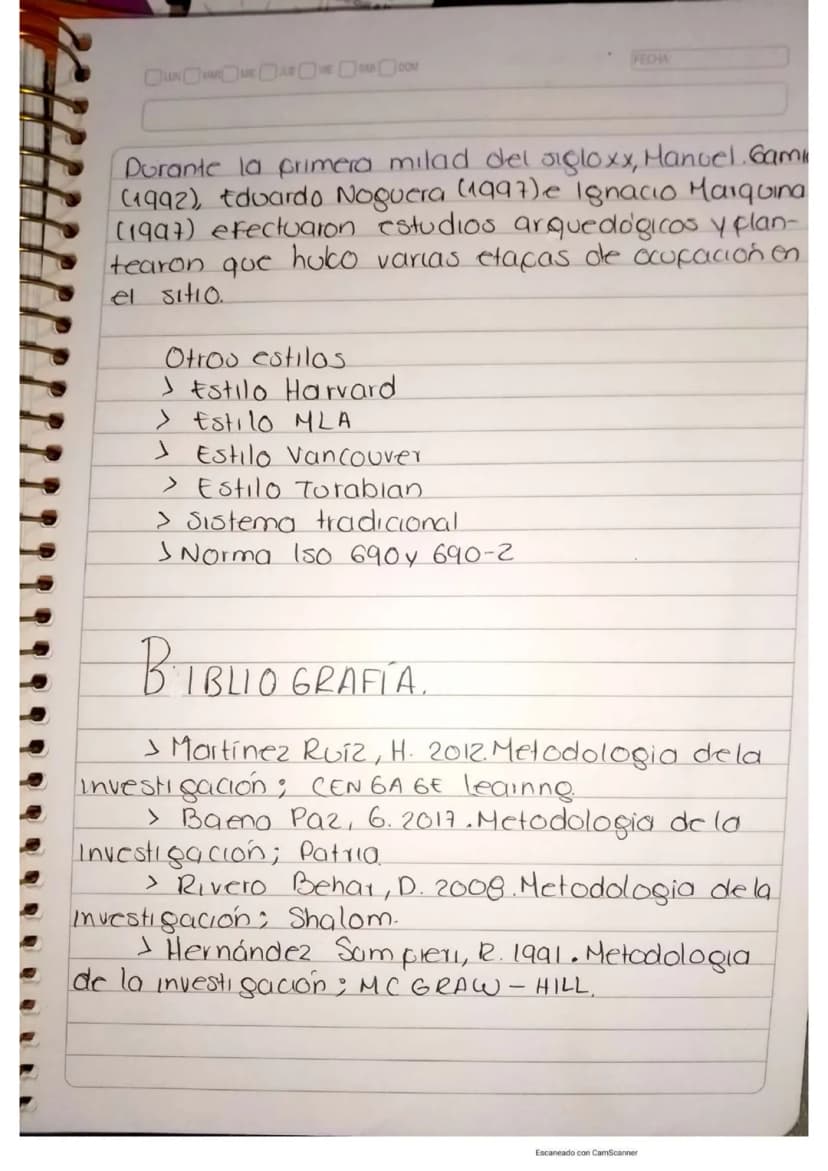 LUN MAR MIE JUE VIE SAB DOM
FECHA
Durante la primera mitad del siglo xx, Manuel. Gami
(1992), Eduardo Noguera (1997) e Ignacio Marquina
(1997) efectuaron estudios arqueológicos y plan-
tearon que hubo varias etapas de ocupación en
el sitio.
Otros estilos
> Estilo Harvard
> Estilo MLA
> Estilo Vancouver
> Estilo Turabian
> Sistema tradicional
> Norma Iso 690 y 690-2
BIBLIOGRAFÍA.
> Martínez Ruíz, H. 2012. Metodologia de la
investigación; CENGAGE leainng.
> Baena Paz, G. 2017. Metodologia de la
Investigación; Patria.
> Rivero Behar, D. 2008. Metodologia de la
investigación; Shalom.
> Hernández Sampieri, R. 1991. Metodologia
de la investigación; MC GRAW-HILL.
Escaneado con CamScanner